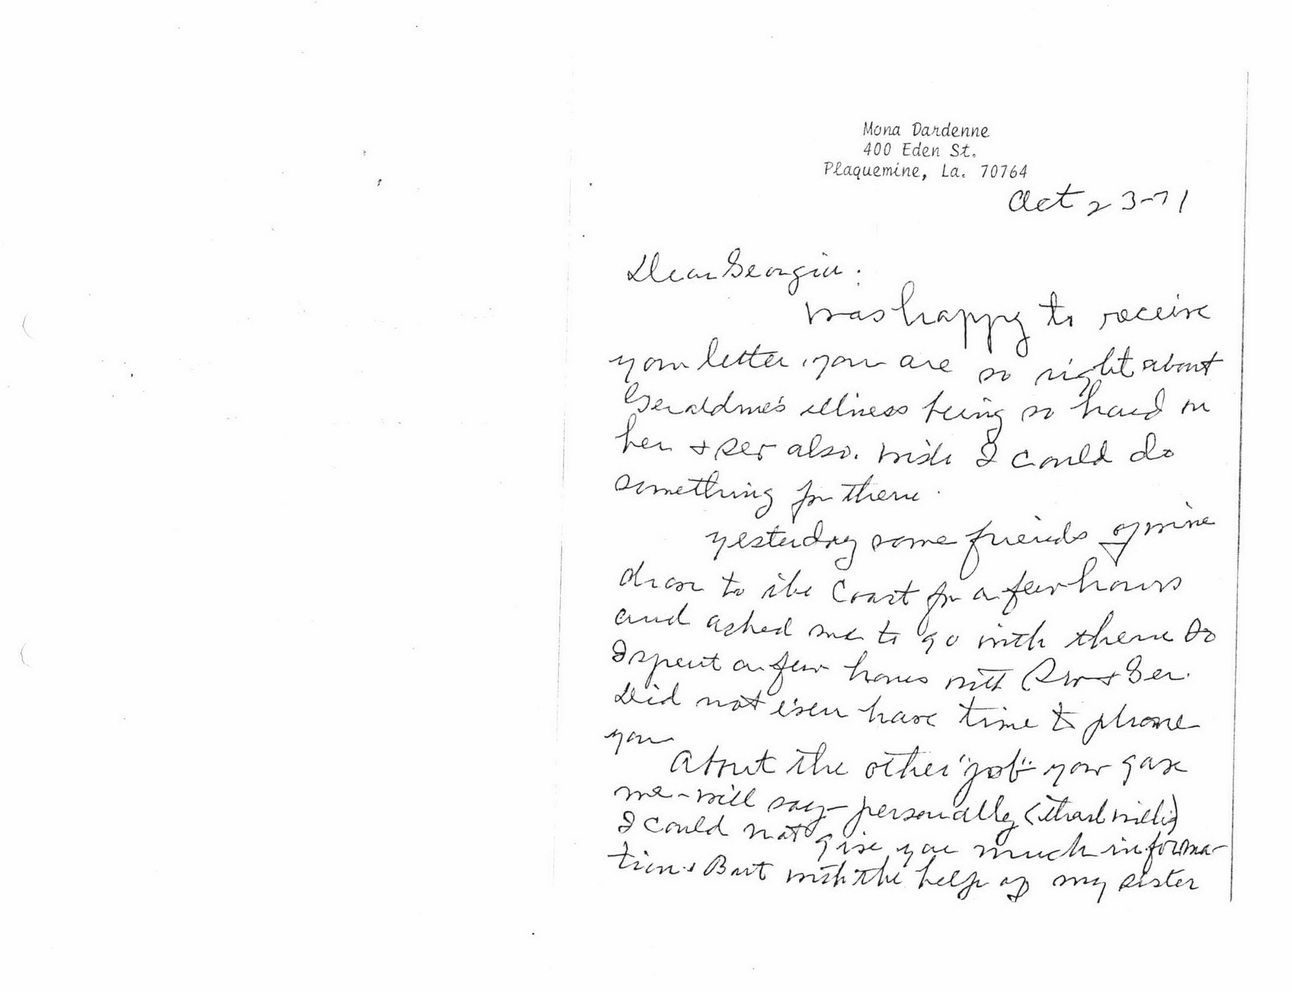 Mona Dardenne
400 Eden St.
Plaquemine, La. 70764
Oct 23-71
Dear Georgia:
Was happy to receive
your letter. you are so right about
Geraldine's illness being so hard on
her + also. wish I could do
something for them.
yesterday some friends of mine
drove to the Coast for a few hours
and asked me to go with them so
I spent a few hours with + Ger.
Did not even have time to phone
you
About the other "job" you gave
me - will say - personally
I could not give you much informa-
tion. But with the help of my sister